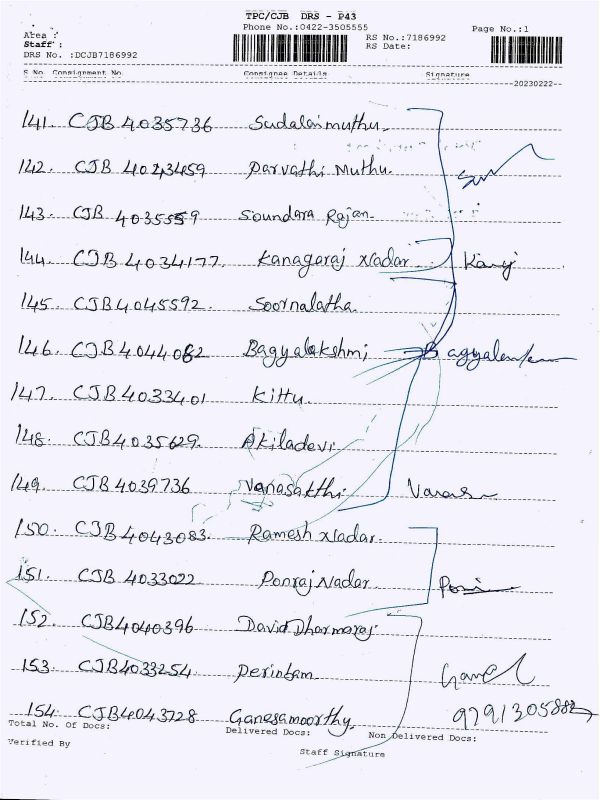 TPC/CJB DRS - P43
Phone No.:0422-3505555
Area :
Staff :
DRS No. :DCJB7186992
RS No.:7186992
RS Date:
Page No.:1
S No. Consignment No. Consignee Details Signature
20230222
141. CJB 4035736 Sudalaimuthu.
142. CJB 4023459 Parvathi Muthu.
143. CJB 4035559 Soundara Rajan.
144. CJB 4034177. Kanagaraj Nadar. Kanaj
145. CJB 4045592. Soornalatha.
146. CJB 4044082 Bagyalakshmi
147. CJB 4033401 Kittu.
148. CJB 4035629. Akiladevi
149. CJB 4039736 Vanasakthi
150. CJB 4043083. Ramesh Nadar.
151. CJB 4033022 Ponraj Nadar
152. CJB4040396 David Dharmaraj
153. CJB4033254 Perinbam
154. CJB4043728 Ganesamoorthy. 9791305882
Total No. Of Docs: Delivered Docs: Non Delivered Docs:
Verified By
Staff Signature